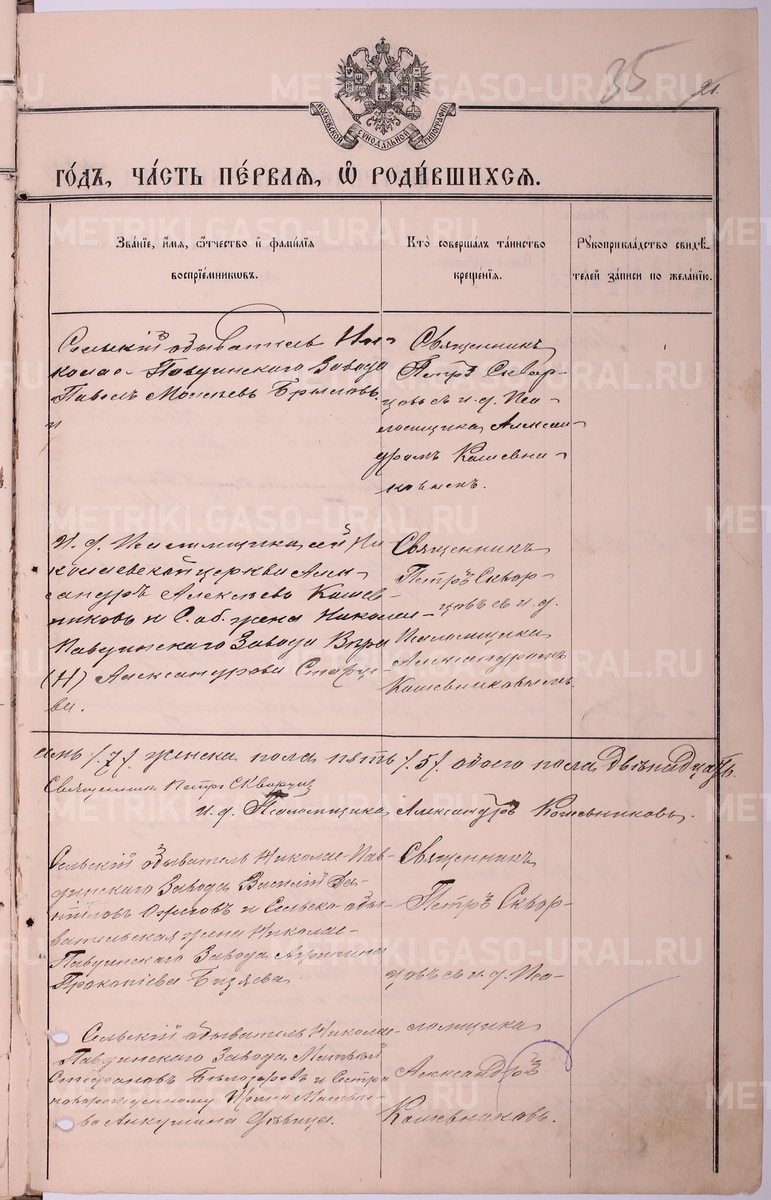 35
21
МОСКОВСКОЙ СѴНОДАЛЬНОЙ ТИПОГРАФІИ
го́дъ, ча́сть пе́рваѧ, ѡ҆ роди́вшихсѧ.
Зва́ніе, и҆́мѧ, ѻ҆́тчество и҆ фами́лїѧ
воспрїе́мниквъ.
Кто̀ соверша́лъ та́инство
креще́нїѧ.
Рꙋкоприкла́дство свидѣ́-
телей за́писи по жела́нїю.
Сельскій обыватель Ни-
колае-Павдинскаго Завода
Павелъ Моисеевъ
и
Священникъ
Петръ Сквор-
цовъ съ и. д. Пса-
ломщика Алексан-
дромъ Кошевни-
ковымъ.
И. д. Псаломщика сей Ни
колаевской церкви Алек-
сандръ Алексѣевъ Кошев-
никовъ и С. об. жена Николае-
Павдинскаго Завода Вѣра
(Н) Александрова Старце-
ва.
Священникъ
Петръ Сквор-
цовъ съ и. д.
Псаломщика
Александромъ
Кошевниковымъ.
/.7/. женска пола пять /.5/. обоего пола двѣнадцать.
Священникъ Петръ Скворцовъ
и. д. Псаломщика Александръ Кошевниковъ.
Сельскій обыватель Николае-Пав-
динскаго Завода Василій Да-
ниловъ Ожеговъ и Сельско обы-
вательская жена Николае-
Павдинскаго Завода
Прокопіева
Священникъ
Петръ Сквор-
цовъ съ и. д. Пса-
ломщика
Александръ
Кошевниковъ.
Сельскій обыватель Николае-
Павдинскаго Завода Матвѣй
Стефановъ и Сестра
новорожденному
дѣвица.
METRIKI.GASO-URAL.RU